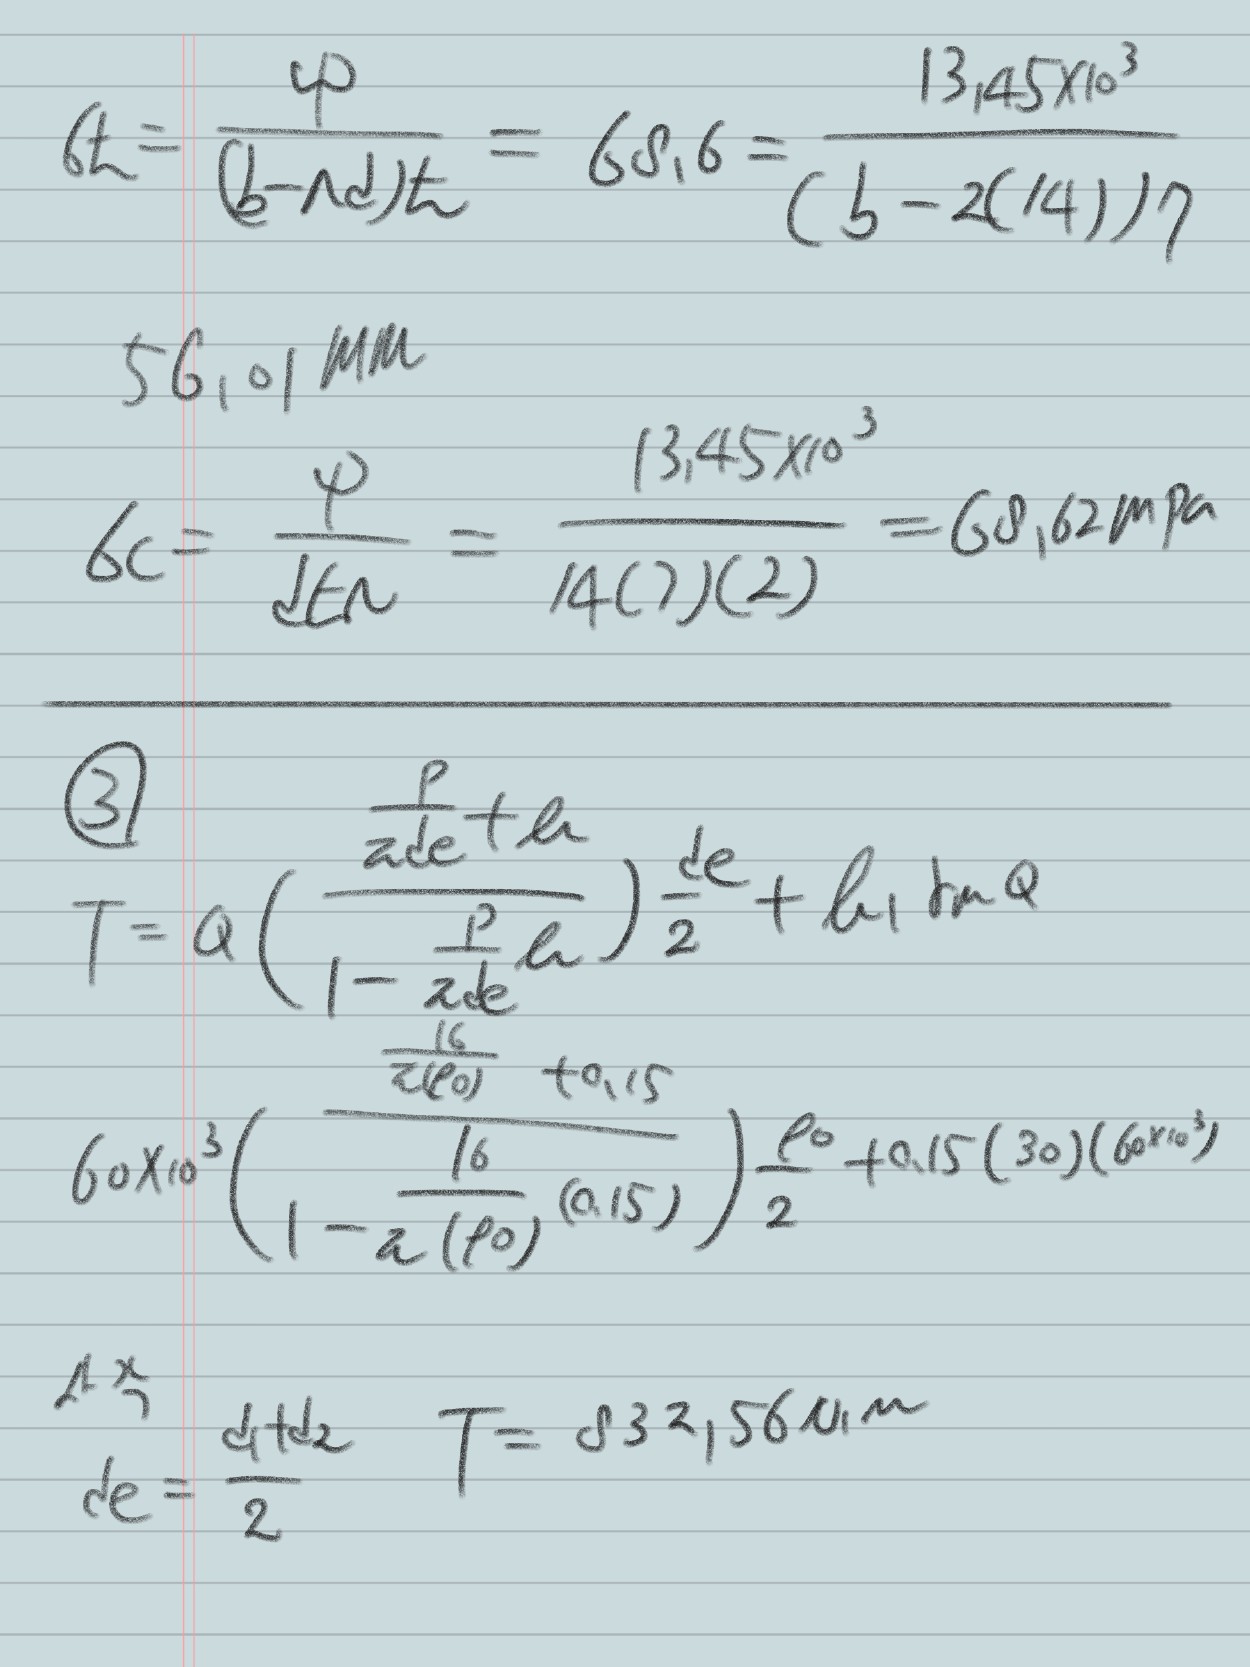 σt = P/((b-nd)t) = 68,6 = 13,45×10³/((b-2(14))7)
56,01 mm
σc = P/(dtn) = 13,45×10³/(14(7)(2)) = 68,62 mpa
③
T = Q((P/πde + μ)/(1 - P/πde μ)) de/2 + μ, rm Q
60×10³((16/π(80) + 0,15)/(1 - 16/π(80) (0.15))) 80/2 + 0.15(30)(60×10³)
de = (d1+d2)/2 T = 832,56 N,m